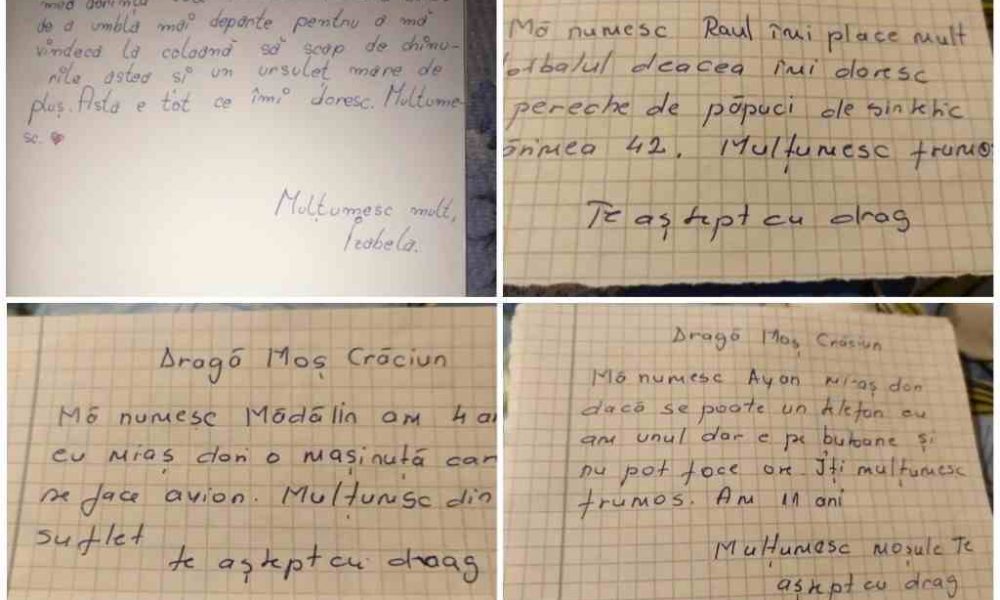 de a umbla mai departe pentru a mă
vindeca la coloană să scap de chinu-
rile astea si un ursuleț mare de
pluș. Asta e tot ce îmi doresc. Mulțume-
sc.
Mulțumesc mult,
Izabela.
Mă numesc Raul îmi place mult
fotbalul deacea îmi doresc
pereche de păpuci de sintetic
ărimea 42. Mulțumesc frumo
Te aștept cu drag
Dragă Moș Crăciun
Mă numesc Mădălin am 4 an
eu miaș dori o mașinuță car
se face avion. Mulțumsc din
suflet
te aștept cu draag
Dragă Moș Crăciun
Mă numesc Ayan miaș don
dacă se poate un telefon eu
am unul dar e pe butoane și
nu pot face ore. Îți mulțumesc
frumos. Am 11 ani
Multumesc moșule Te
aștept cu drag